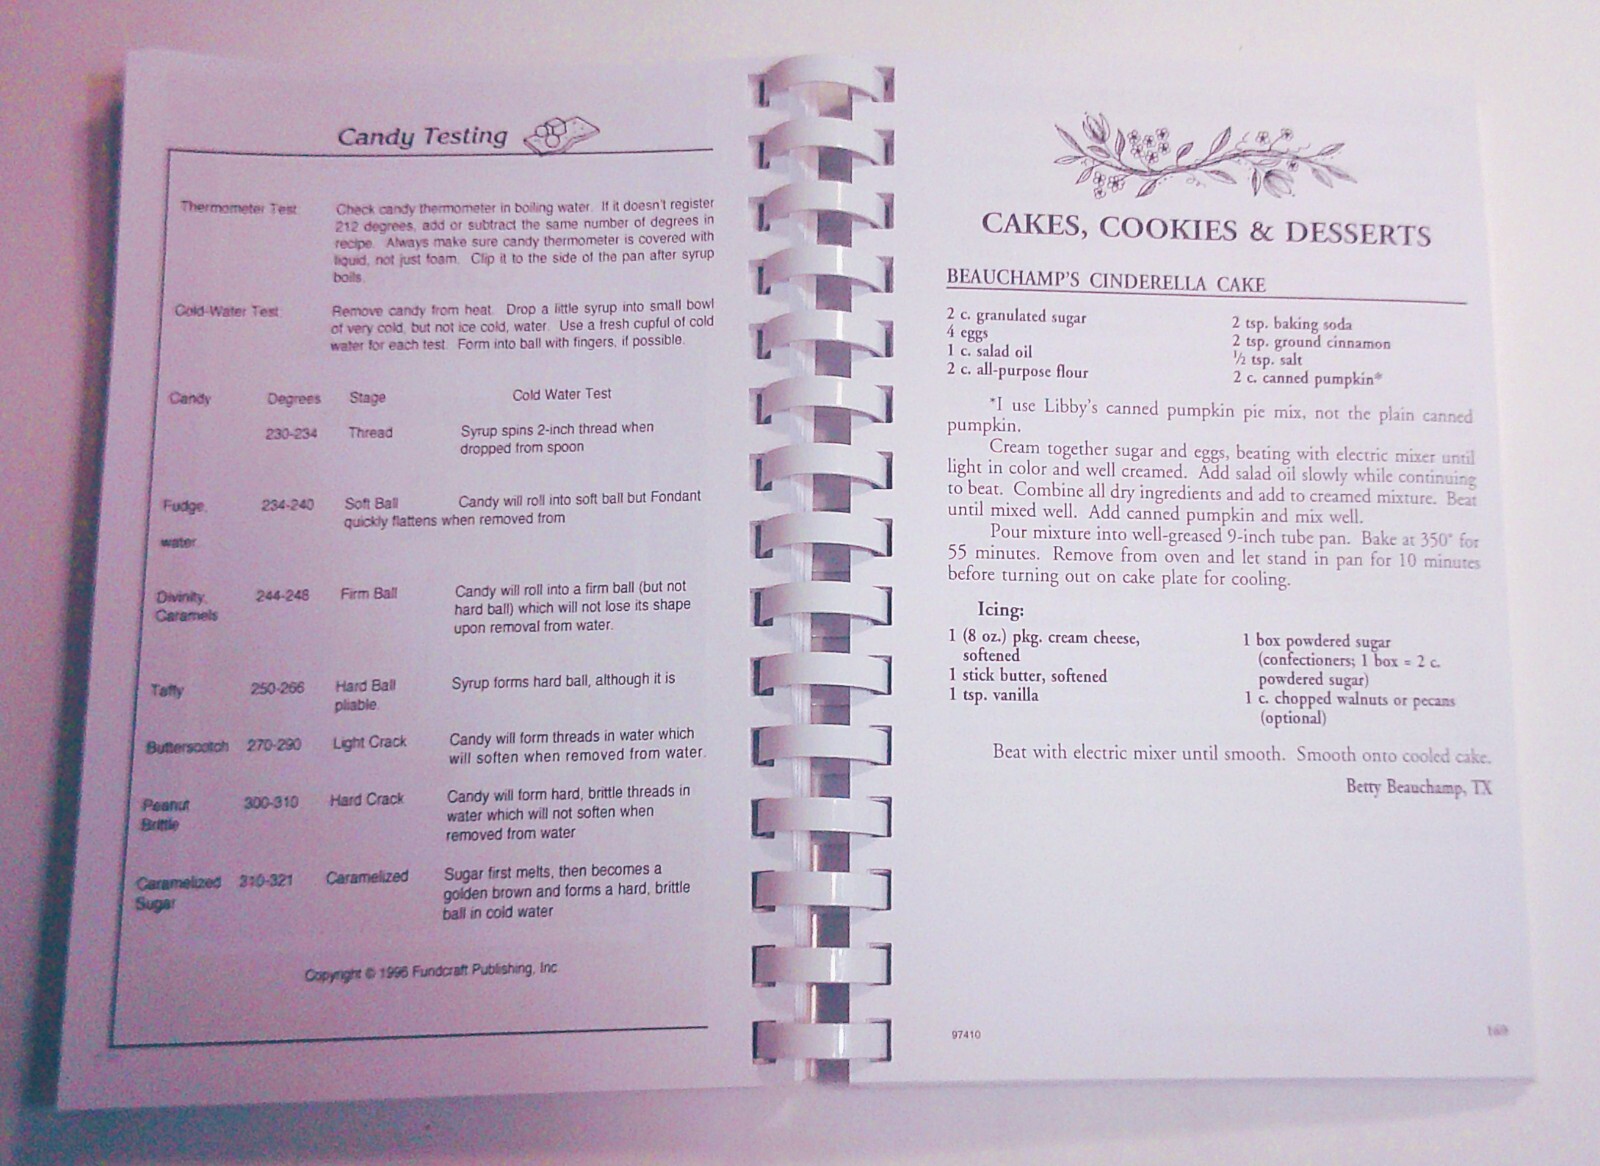 Candy Testing
Thermometer Test Check candy thermometer in boiling water. If it doesn't register
212 degrees, add or subtract the same number of degrees in
recipe. Always make sure candy thermometer is covered with
liquid, not just foam. Clip it to the side of the pan after syrup
boils.
Cold-Water Test Remove candy from heat. Drop a little syrup into small bowl
of very cold, but not ice cold, water. Use a fresh cupful of cold
water for each test. Form into ball with fingers, if possible.
Candy Degrees Stage Cold Water Test
230-234 Thread Syrup spins 2-inch thread when
dropped from spoon
Fudge, 234-240 Soft Ball Candy will roll into soft ball but Fondant
quickly flattens when removed from
water.
Divinity, 244-248 Firm Ball Candy will roll into a firm ball (but not
Caramels hard ball) which will not lose its shape
upon removal from water.
Taffy 250-266 Hard Ball Syrup forms hard ball, although it is
pliable.
Butterscotch 270-290 Light Crack Candy will form threads in water which
will soften when removed from water.
Peanut 300-310 Hard Crack Candy will form hard, brittle threads in
Brittle water which will not soften when
removed from water
Caramelized 310-321 Caramelized Sugar first melts, then becomes a
Sugar golden brown and forms a hard, brittle
ball in cold water
Copyright © 1996 Fundcraft Publishing, Inc
CAKES, COOKIES & DESSERTS
BEAUCHAMP'S CINDERELLA CAKE
2 c. granulated sugar
4 eggs
1 c. salad oil
2 c. all-purpose flour
2 tsp. baking soda
2 tsp. ground cinnamon
½ tsp. salt
2 c. canned pumpkin*
*I use Libby's canned pumpkin pie mix, not the plain canned
pumpkin.
Cream together sugar and eggs, beating with electric mixer until
light in color and well creamed. Add salad oil slowly while continuing
to beat. Combine all dry ingredients and add to creamed mixture. Beat
until mixed well. Add canned pumpkin and mix well.
Pour mixture into well-greased 9-inch tube pan. Bake at 350° for
55 minutes. Remove from oven and let stand in pan for 10 minutes
before turning out on cake plate for cooling.
Icing:
1 (8 oz.) pkg. cream cheese,
softened
1 stick butter, softened
1 tsp. vanilla
1 box powdered sugar
(confectioners; 1 box = 2 c.
powdered sugar)
1 c. chopped walnuts or pecans
(optional)
Beat with electric mixer until smooth. Smooth onto cooled cake.
Betty Beauchamp, TX
97410